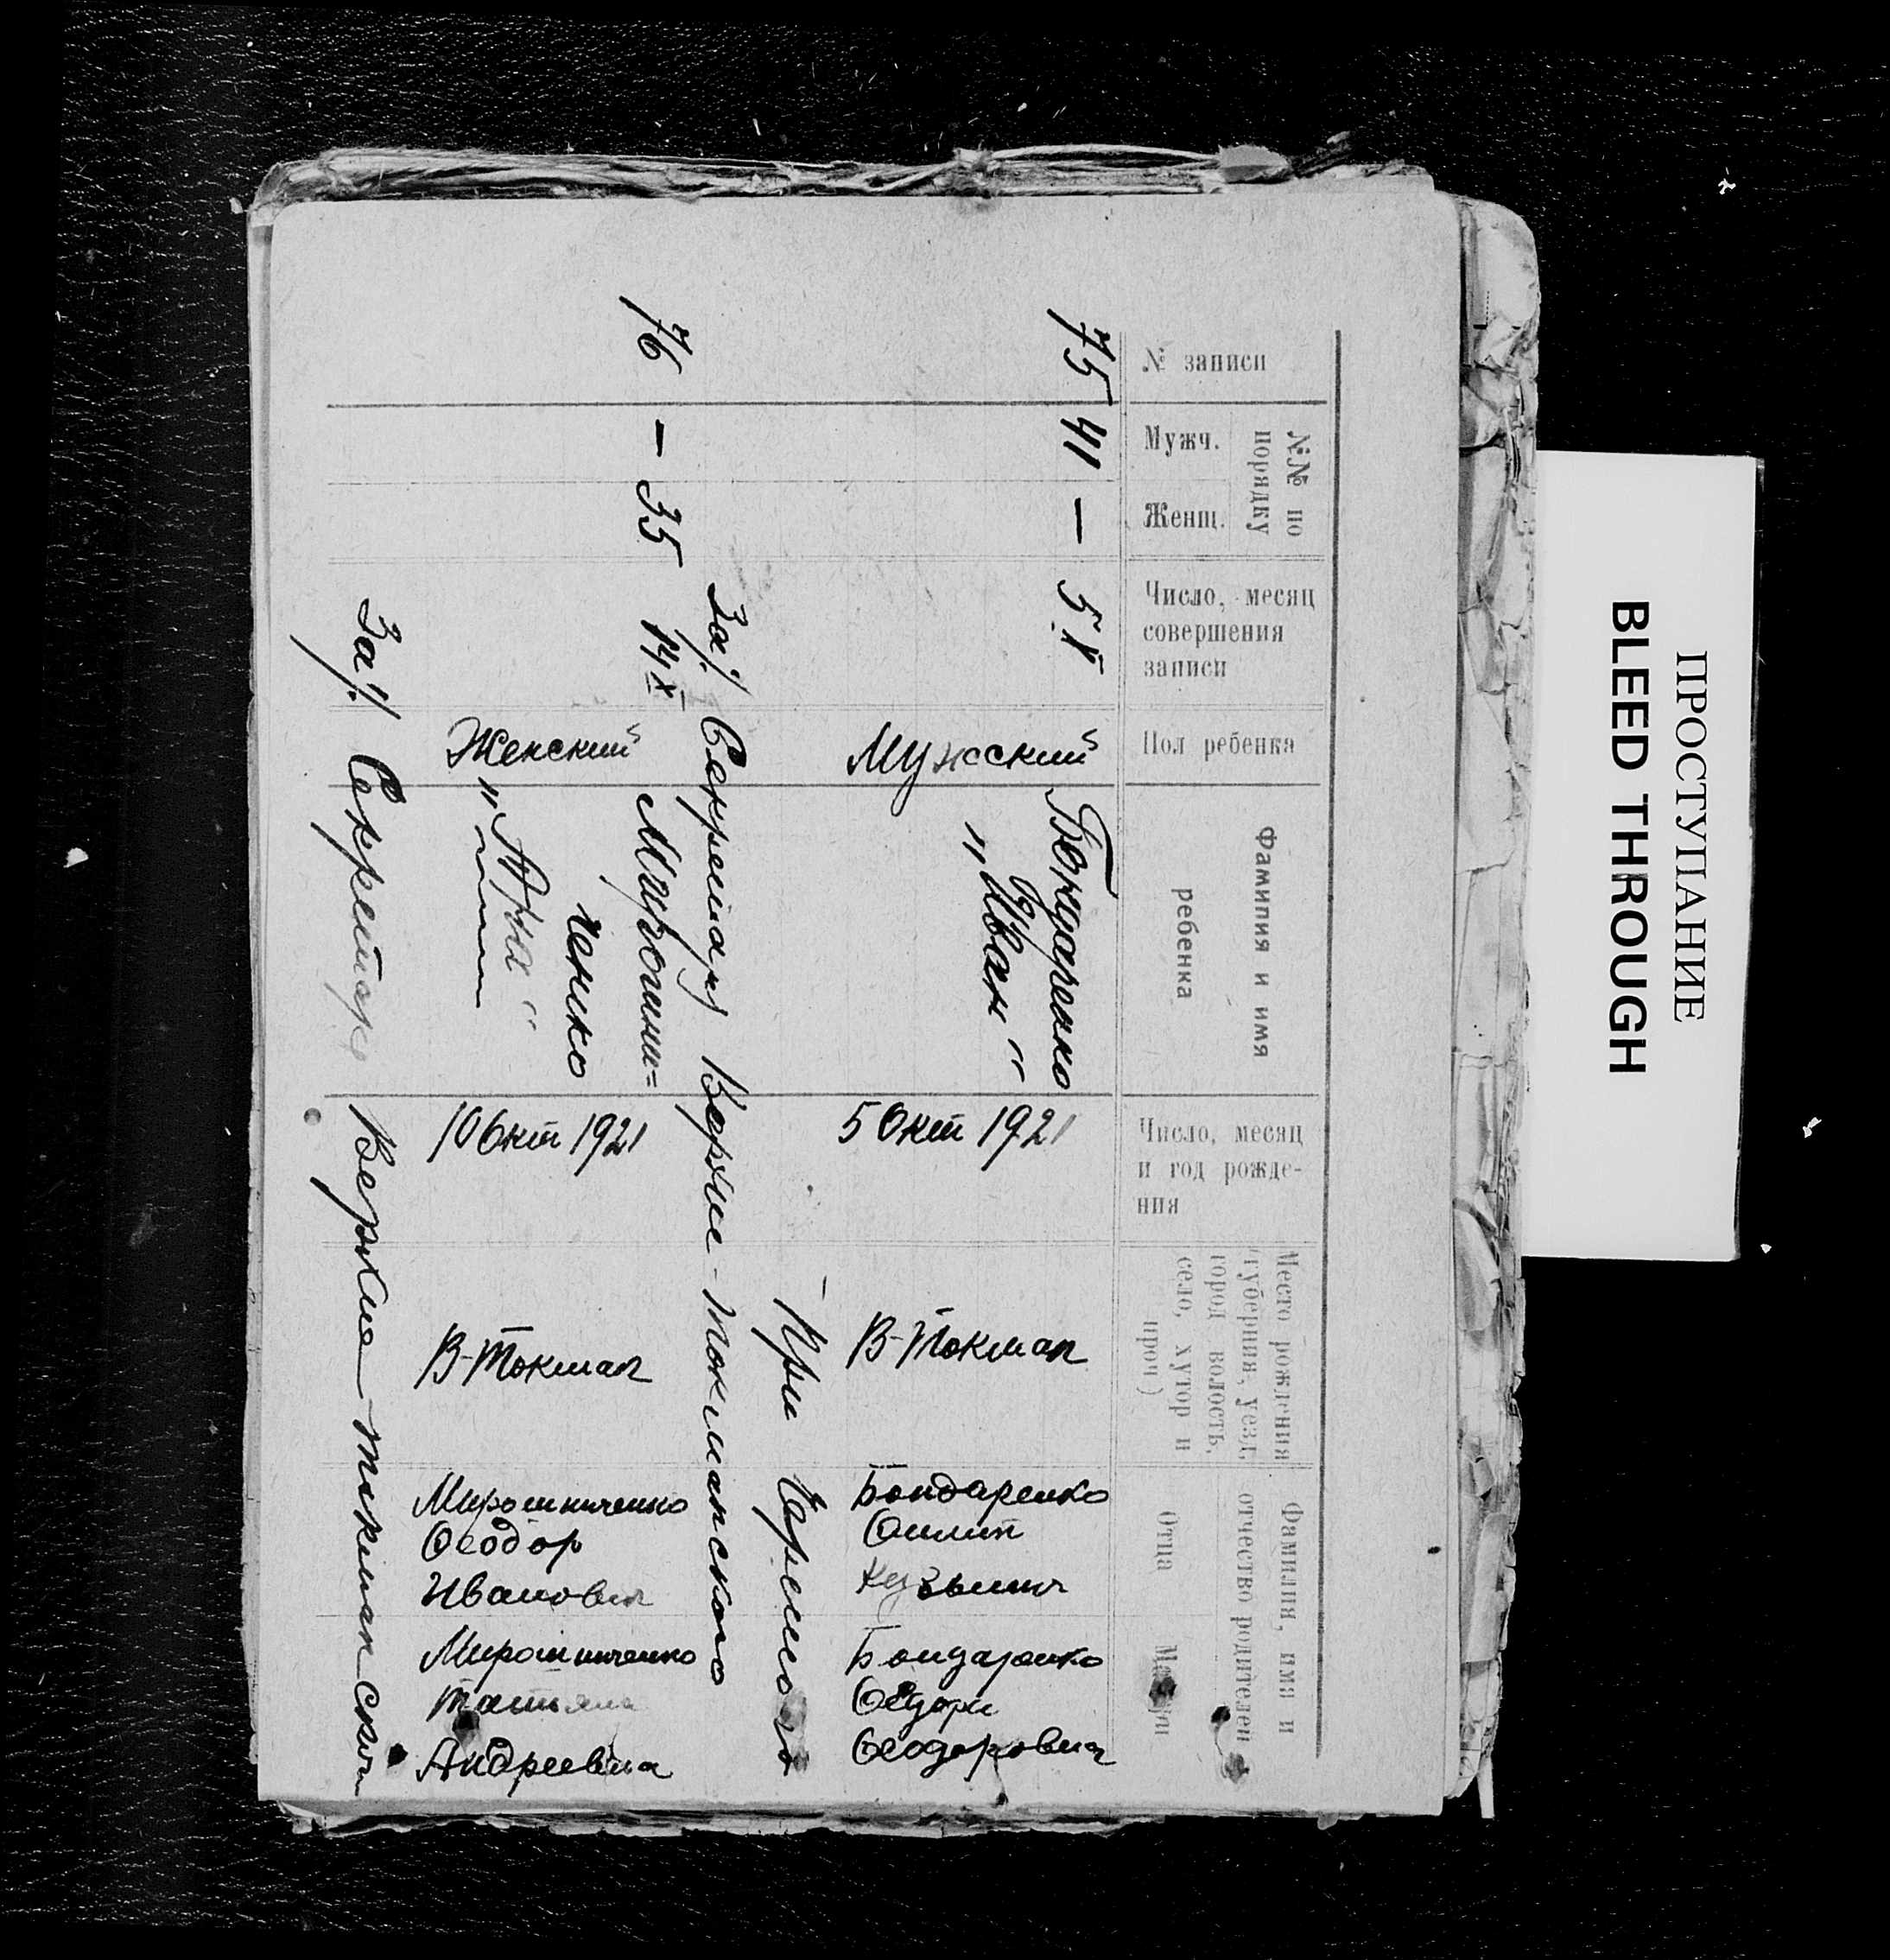 № записи
№№ по
порядку
Мужч.
Женщ.
Число, месяц
совершения
записи
Пол ребенка
Фамилия и имя
ребенка
Число, месяц
и год рожде-
ния
Место рождения
(губерния, уезд,
город волость,
село, хутор и
проч)
Фамилия, имя и
отчество родителей
Отца
Матери
75
41
—
5 X
Мужеский
Бондаренко
„Иван"
5 Окт 1921
В-Токмак
Бондаренко
Филип
Кузьмич
Бондаренко
Федора
Феодоровна
При
За/. Секретаря Верхне-Токмакского
76
—
35
14 X
Женский
Мирошни=
ченко
„Анна"
10 Окт 1921
В-Токмак
Мирошниченко
Феодор
Иванович
Мирошниченко
Татьяна
Андреевна
За/. Секретаря Верхне-Токмакского
ПРОСТУПАНИЕ
BLEED THROUGH